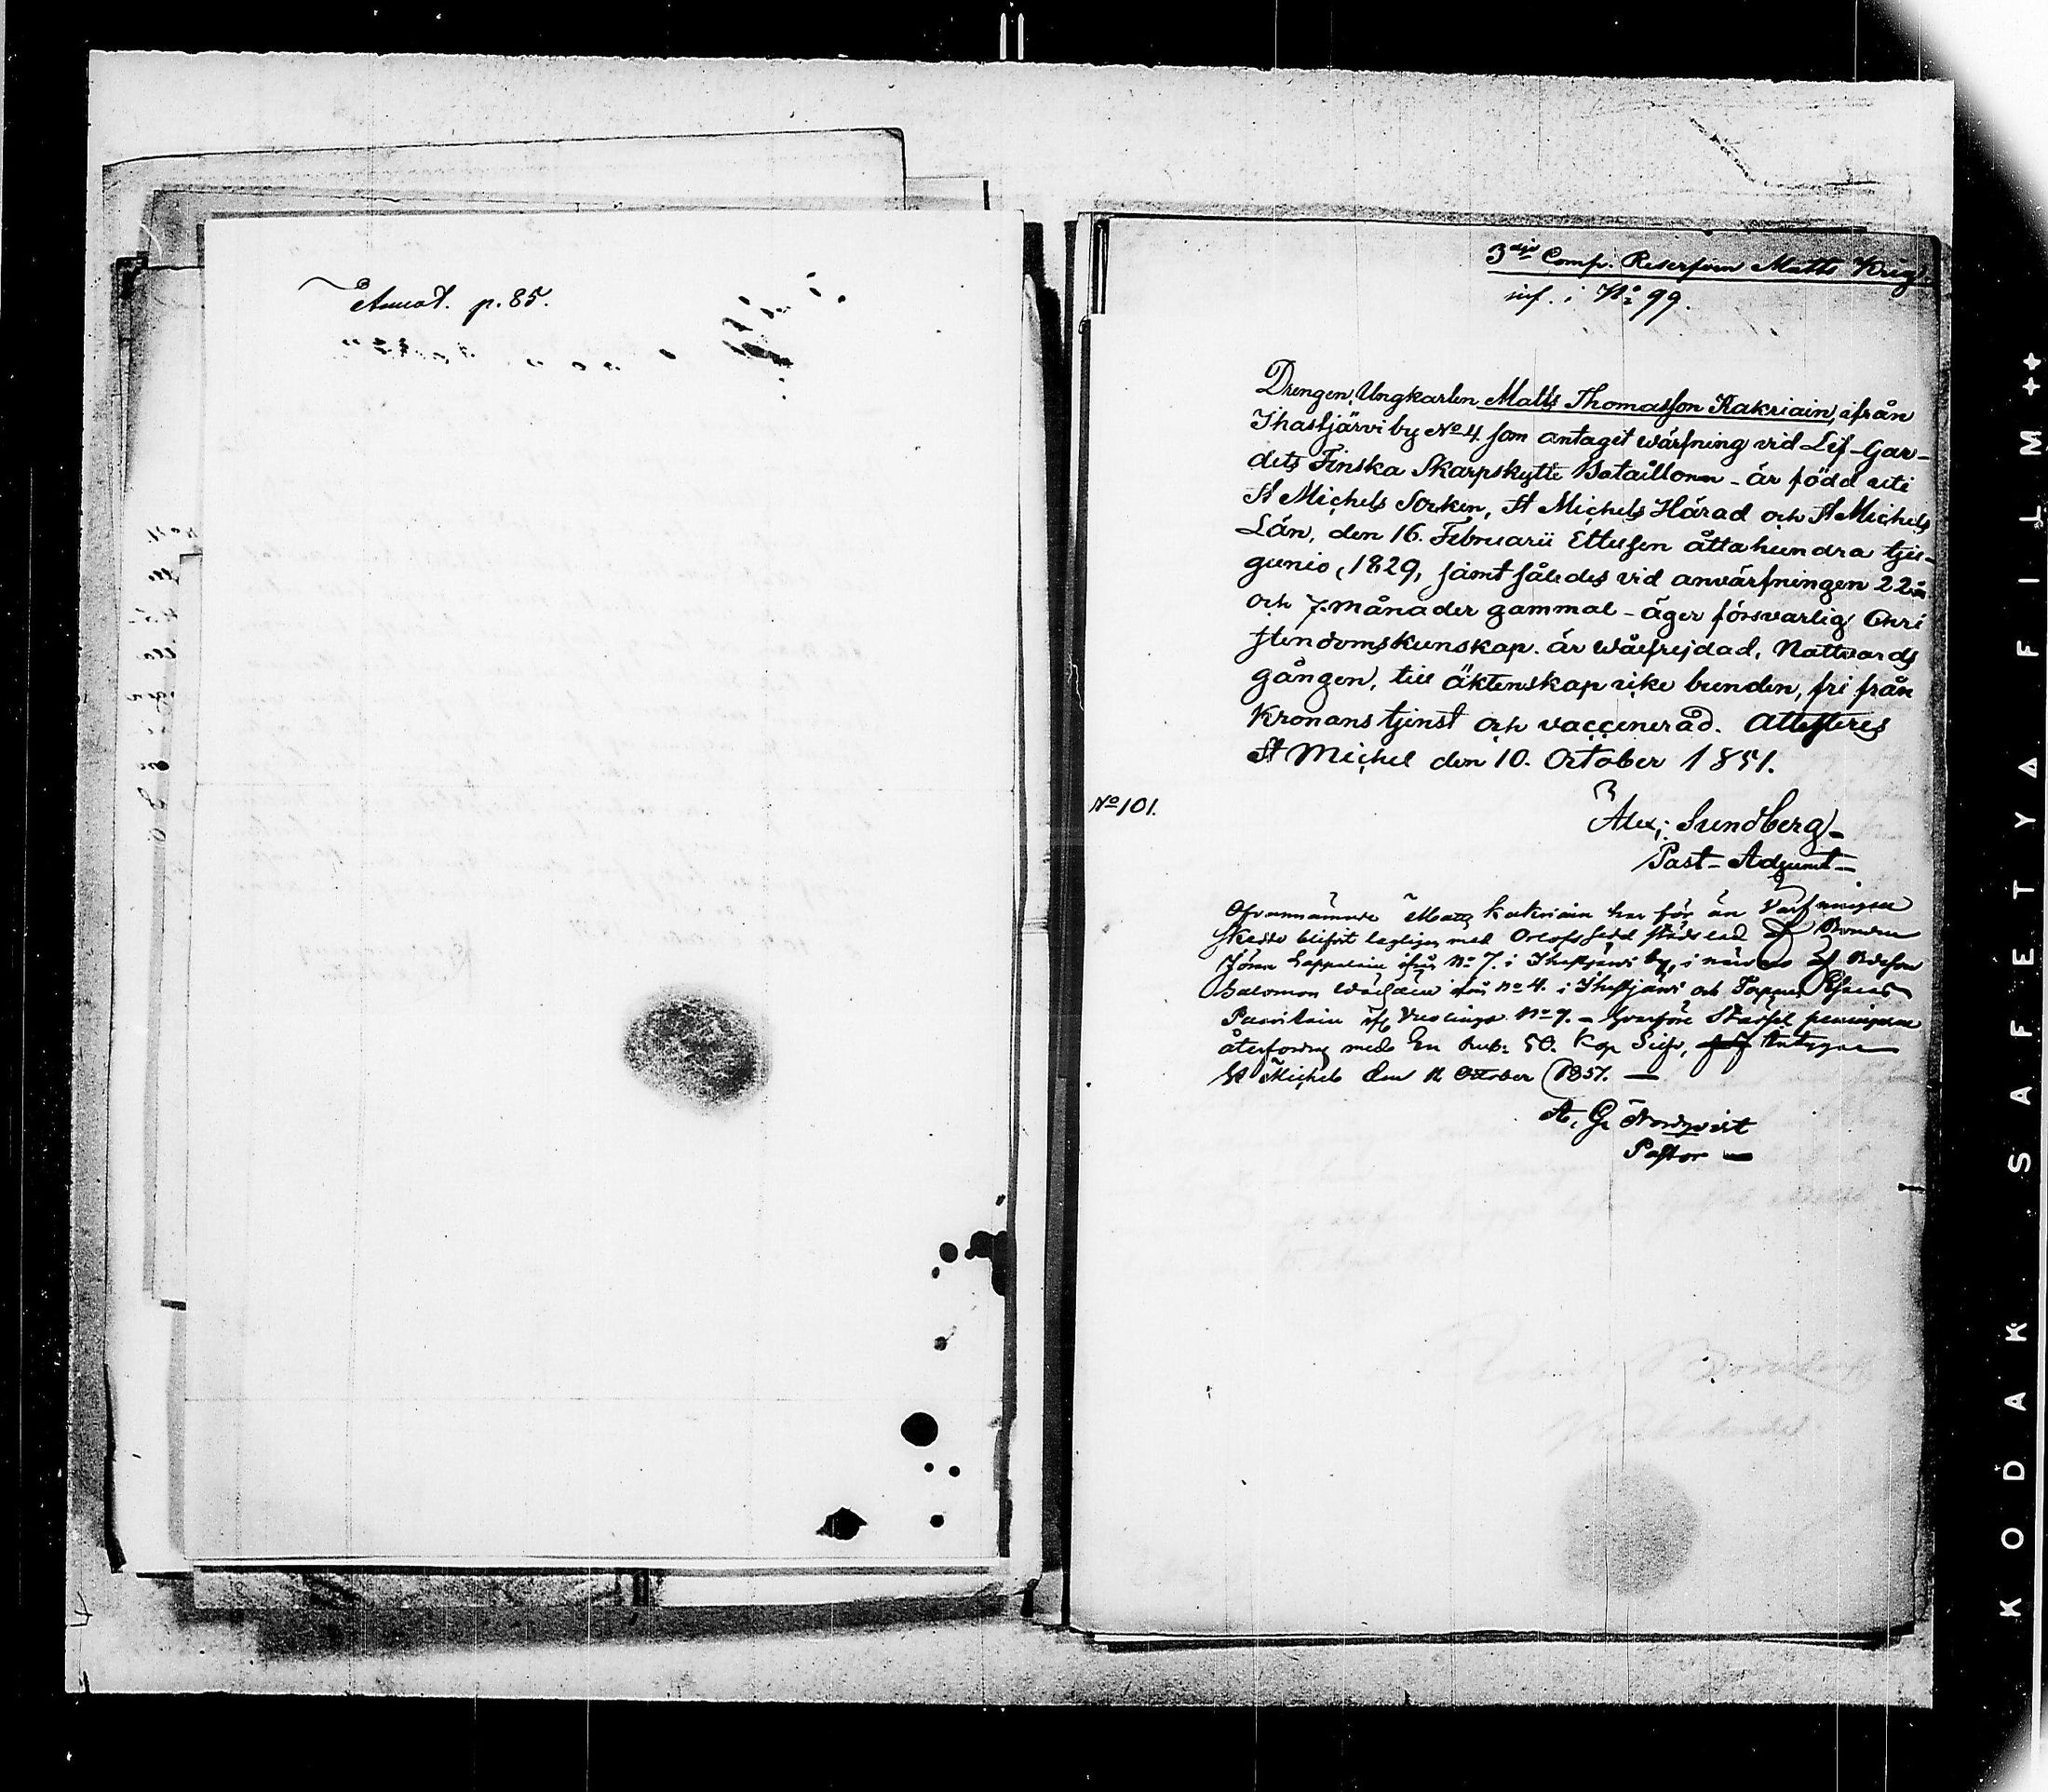 Annot. p. 85.
3dje Comp. Reserfven Matts Krig
inf. i No 99.
Drengen, Ungkarlen Matts Thomasson Kakriain, ifrån
Ihastjärvi by No 4 som antagit wärfning vid Lif-Gar-
dets Finska Skarpskytte Bataillonn - är född uti
St Michels Socken, St Michels Härad och St Michels
Län, den 16. Februarii Ettusen åttahundra tju-
gunio, 1829, samt således vid anvärfningen 22 år
och 7. månader gammal - äger försvarlig Chri
stendomskunskap. är wälfrejdad, Nattvards
gången, till äktenskap icke bunden, fri från
Kronans tjenst och vaccinerad. Attesteres
St Michel den 10. October 1851.
No 101.
Alex; Sundberg
Past- Adjunct
Ofvannämnde Matts Kakriain har för än Värfningen
skedde blifvit lagligen med Orlofssedel städslad af Bonden
Jöran Lappalain ifrån No 7. i Ihastjärvi by, i närvaro af
Salomon från No 4. i Ihastjärvi och Torparen
No 7. - hvarföre Städsel penningarne
återfordras med En Rub: 50. Kop Silfr,
St Michel den 11 October 1851.
A. G. Nordqvist
Pastor
KODAK SAFETY FILM